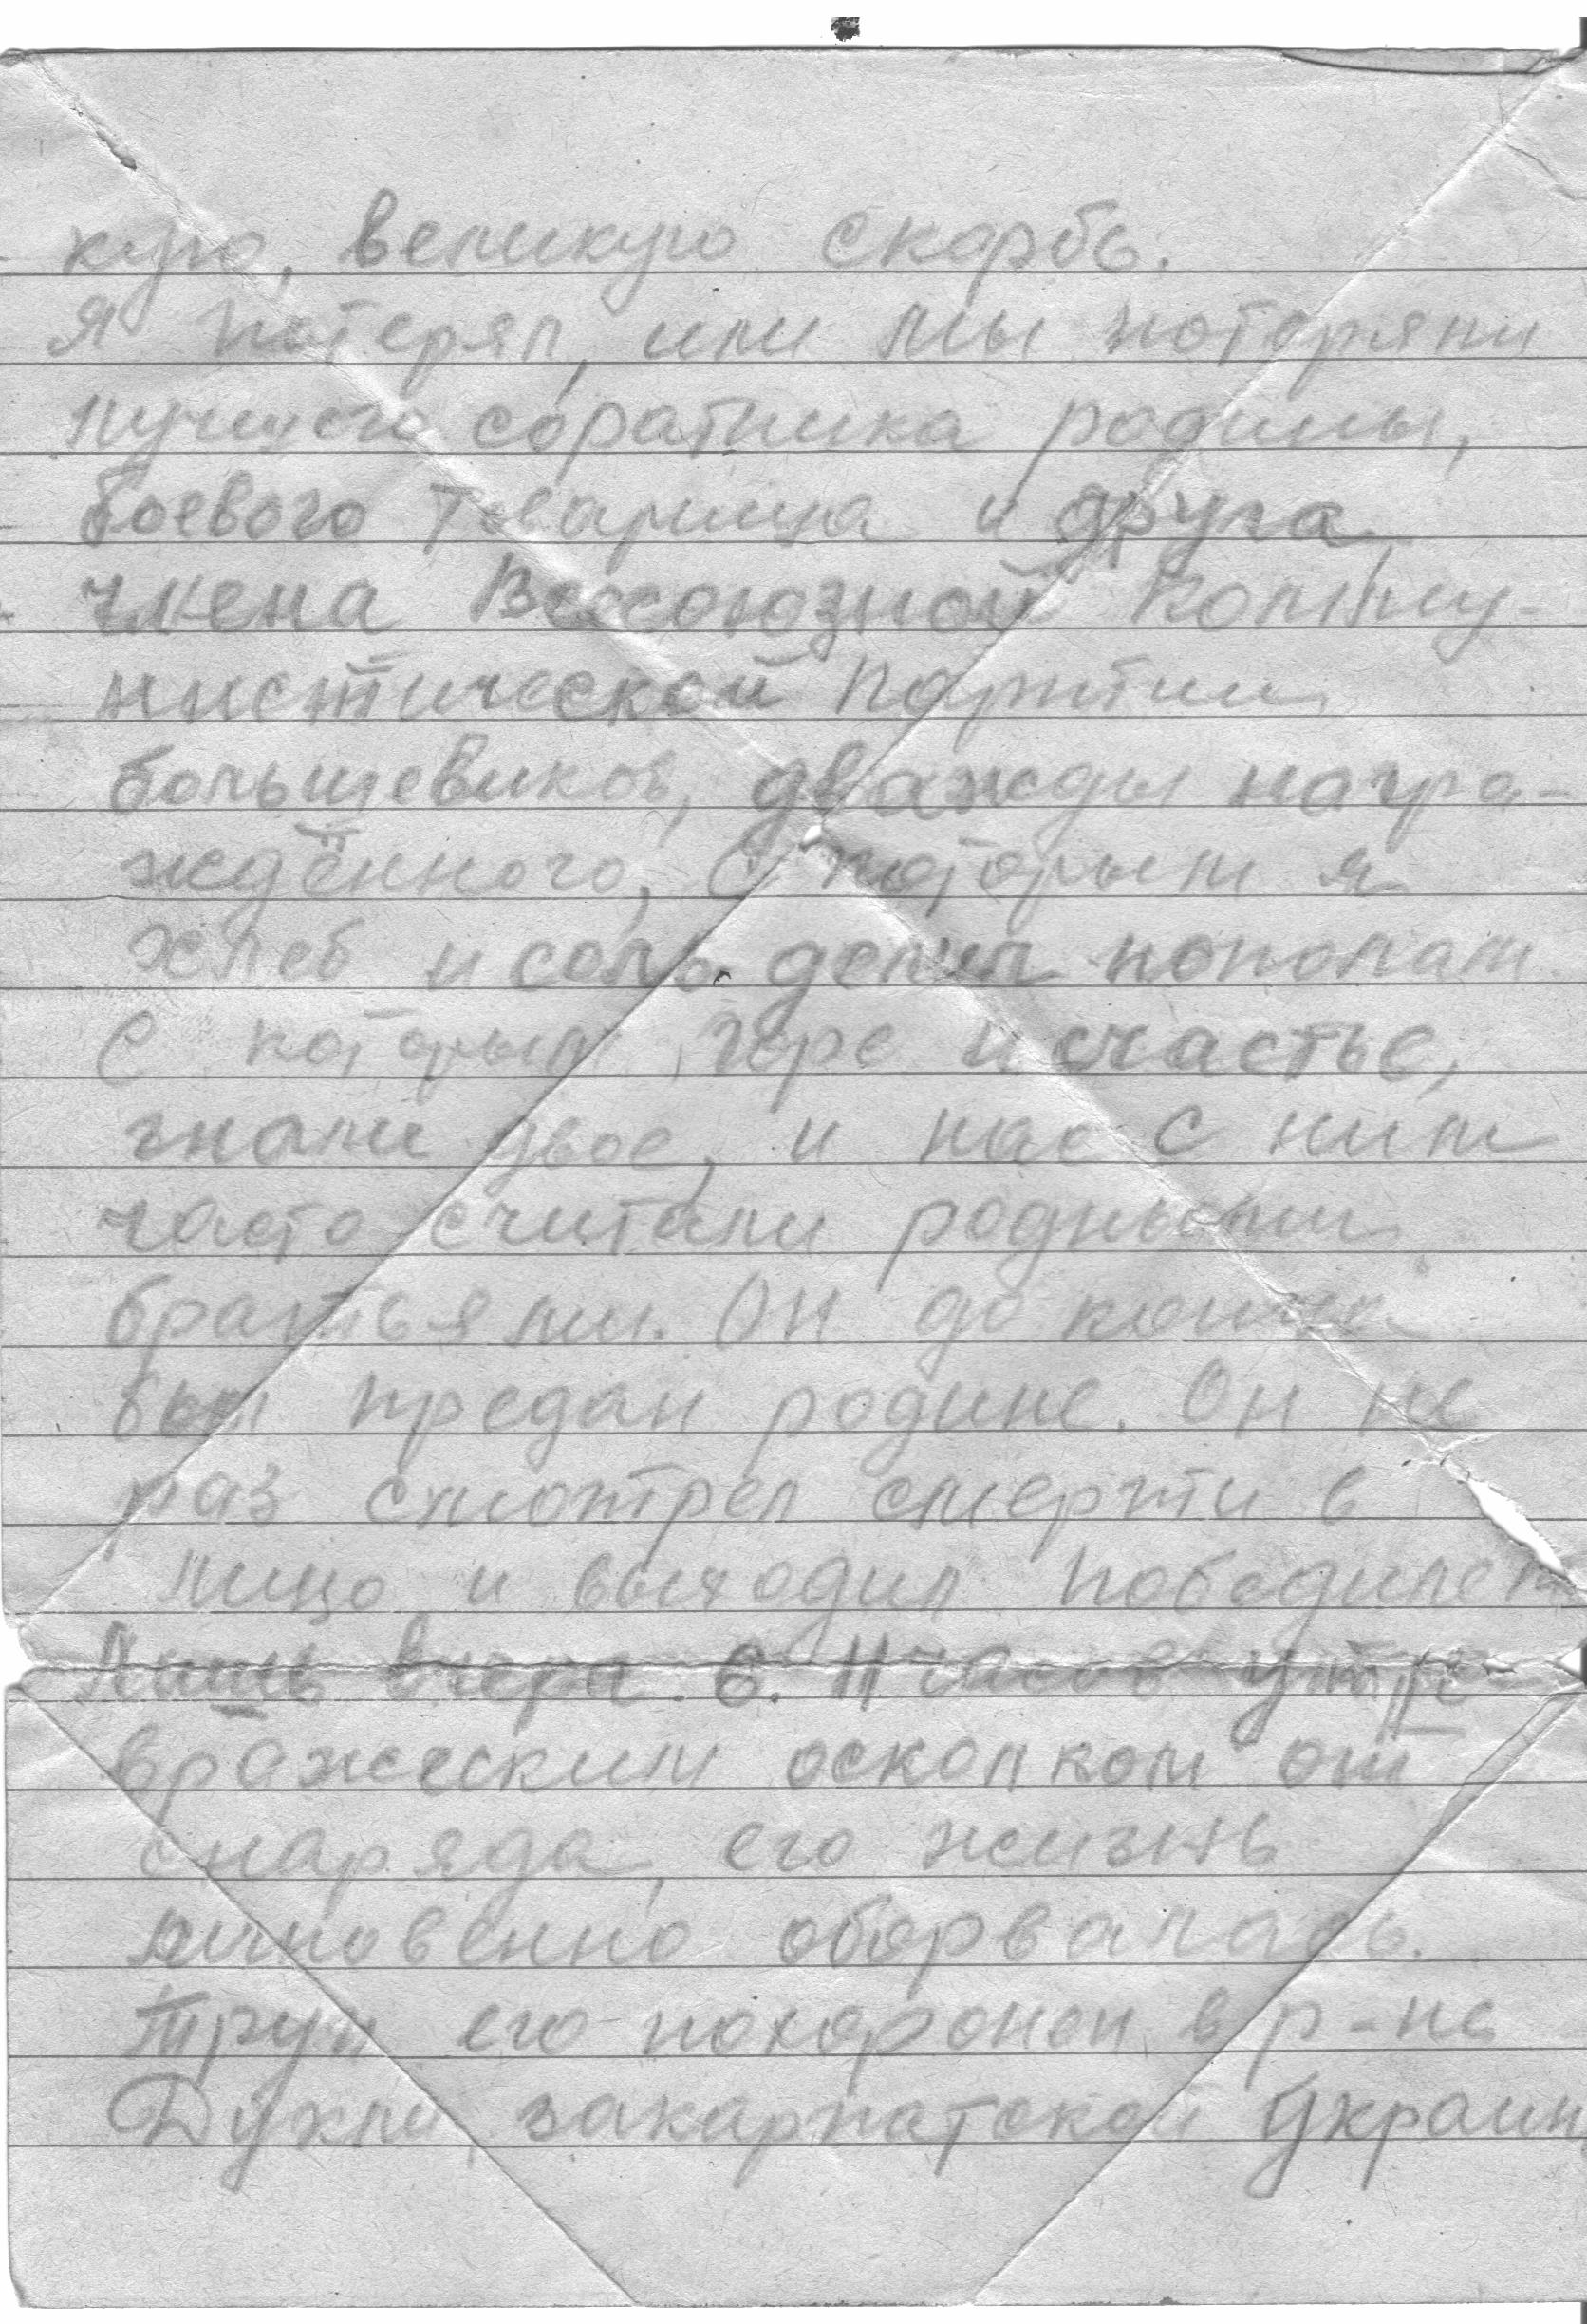 кую, великую скорбь.
Я потерял, или мы потеряли
лучшего соратника родины,
боевого товарища и друга,
члена Всесоюзной Комму-
нистической партии
большевиков, дважды награ-
ждённого, с которым я
хлеб и соль делил пополам
С которым, горе и счастье,
знали двое, и нас с ним
часто считали родными
братьями. Он до конца
был предан родине. Он не
раз смотрел смерти в
лицо и выходил победилем
Лишь вчера в 11 часов утра
вражеским осколком от
снаряда, его жизнь
мгновенно оборвалась.
Труп его похоронен в р-не
Дукли, закарпатской Украин